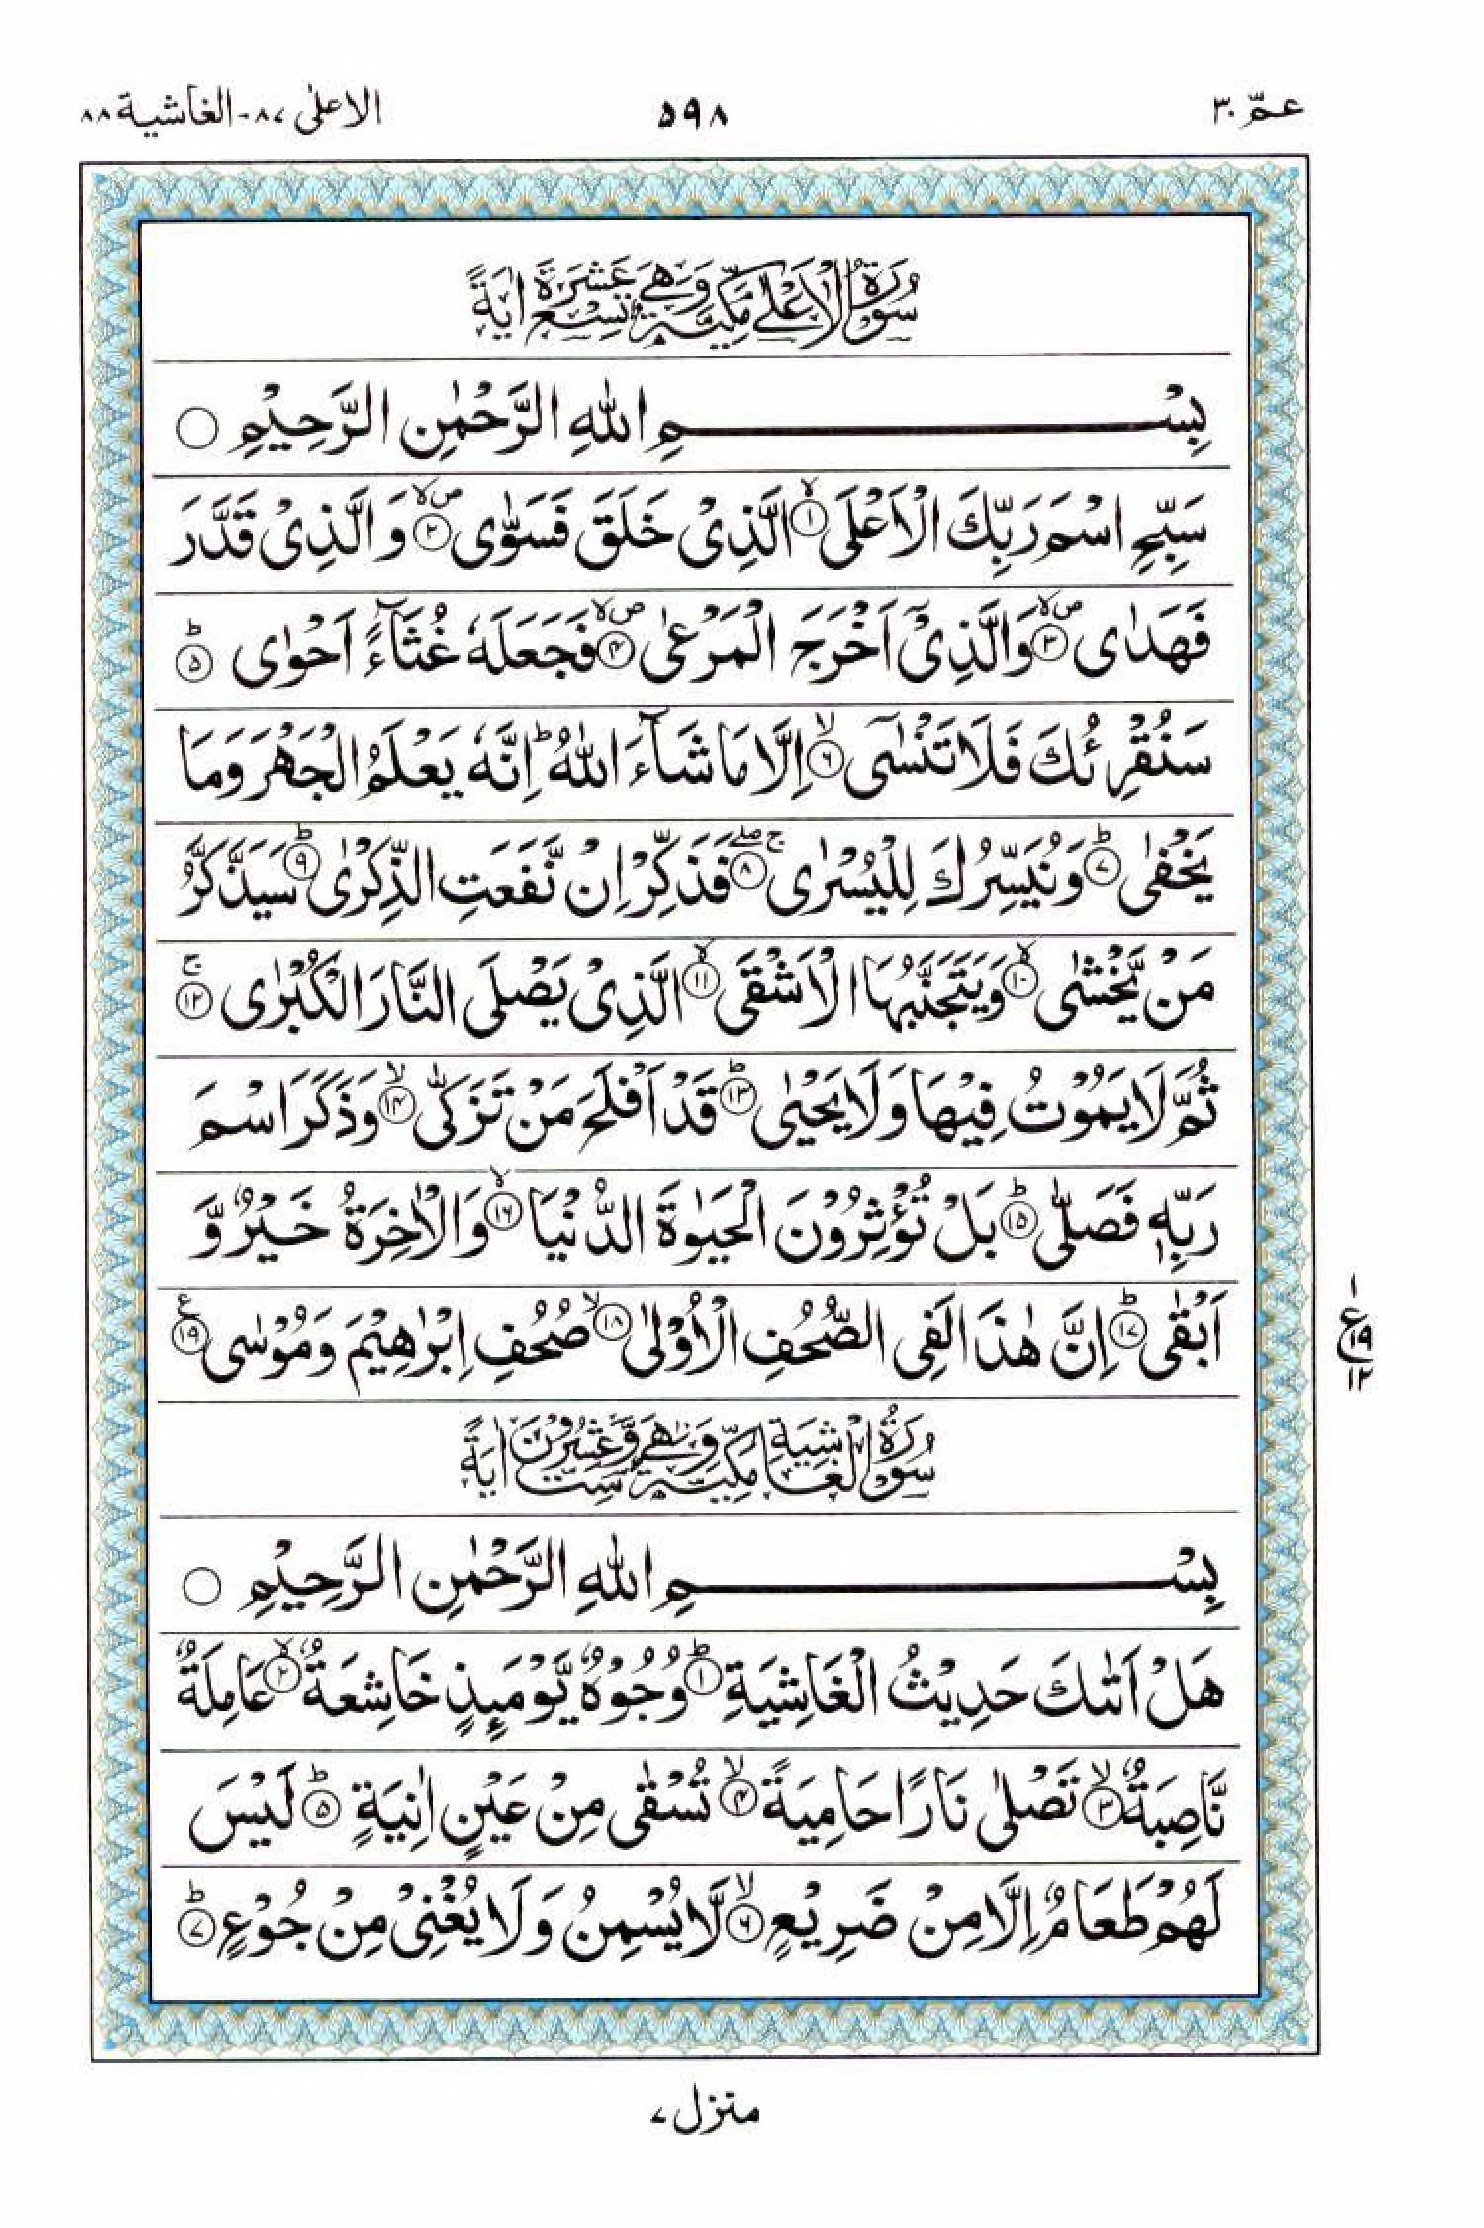 عمّ ٣٠ ٥٩٨ الاعلىٰ ٨٧-الغاشية ٨٨
سُوْرَةُ الْاَعْلٰى مَكِّيَّةٌ وَّهِيَ تِسْعَ عَشْرَةَ اٰيَةً
بِسْمِ اللّٰهِ الرَّحْمٰنِ الرَّحِيْمِ ○
سَبِّحِ اسْمَ رَبِّكَ الْاَعْلَى ۙ‏﴿۱﴾ الَّذِىْ خَلَقَ فَسَوّٰى ۪ۙ‏﴿۲﴾ وَالَّذِىْ قَدَّرَ
فَهَدٰى ۪ۙ‏﴿۳﴾ وَالَّذِىْۤ اَخْرَجَ الْمَرْعٰى ۪ۙ‏﴿۴﴾ فَجَعَلَهٗ غُثَآءً اَحْوٰى ؕ‏﴿۵﴾
سَنُقْرِئُكَ فَلَا تَنْسٰٓى ۙ‏﴿۶﴾ اِلَّا مَا شَآءَ اللّٰهُ‌ؕ اِنَّهٗ يَعْلَمُ الْجَهْرَ وَمَا
يَخْفٰى ؕ‏﴿۷﴾ وَنُيَسِّرُكَ لِلْيُسْرٰى ۖۚ‏﴿۸﴾ فَذَكِّرْ اِنْ نَّفَعَتِ الذِّكْرٰى ؕ‏﴿۹﴾ سَيَذَّكَّرُ
مَنْ يَّخْشٰى ۙ‏﴿۱۰﴾ وَيَتَجَنَّبُهَا الْاَشْقَى ۙ‏﴿۱۱﴾ الَّذِىْ يَصْلَى النَّارَ الْكُبْرٰى‌ ۚ‏﴿۱۲﴾
ثُمَّ لَا يَمُوْتُ فِيْهَا وَلَا يَحْيٰى ؕ‏﴿۱۳﴾ قَدْ اَفْلَحَ مَنْ تَزَكّٰى ۙ‏﴿۱۴﴾ وَذَكَرَ اسْمَ
رَبِّهٖ فَصَلّٰى‌ ؕ‏﴿۱۵﴾ بَلْ تُؤْثِرُوْنَ الْحَيٰوةَ الدُّنْيَا ۙ‏﴿۱۶﴾ وَالْاٰخِرَةُ خَيْرٌ وَّ
اَبْقٰىؕ‏﴿۱۷﴾ اِنَّ هٰذَا لَفِى الصُّحُفِ الْاُوْلٰى ۙ‏﴿۱۸﴾ صُحُفِ اِبْرٰهِيْمَ وَمُوْسٰى ‏﴿۱۹﴾ ع
١
ع ١٩
١٢
سُوْرَةُ الْغَاشِيَةِ مَكِّيَّةٌ وَّهِيَ سِتٌّ وَّعِشْرُوْنَ اٰيَةً
بِسْمِ اللّٰهِ الرَّحْمٰنِ الرَّحِيْمِ ○
هَلْ اَتٰٮكَ حَدِيْثُ الْغَاشِيَةِؕ‏﴿۱﴾ وُجُوْهٌ يَّوْمَٮِٕذٍ خَاشِعَةٌ ۙ‏﴿۲﴾ عَامِلَةٌ
نَّاصِبَةٌ ۙ‏﴿۳﴾ تَصْلٰى نَارًا حَامِيَةً ۙ‏﴿۴﴾ تُسْقٰى مِنْ عَيْنٍ اٰنِيَةٍؕ‏﴿۵﴾ لَيْسَ
لَهُمْ طَعَامٌ اِلَّا مِنْ ضَرِيْعٍۙ‏﴿۶﴾ لَّا يُسْمِنُ وَلَا يُغْنِىْ مِنْ جُوْعٍؕ‏﴿۷﴾
منزل ٧